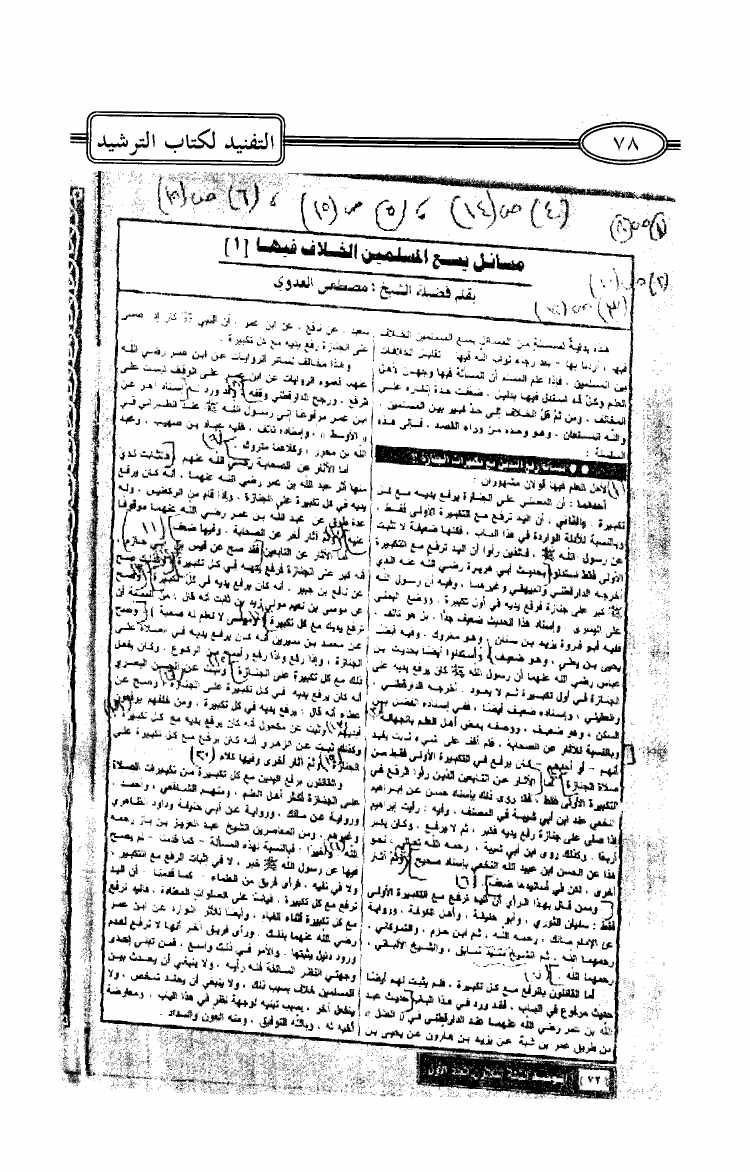 ٧٨
التفنيد لكتاب الترشيد
(٤) ص (١٤) ، (٥) ص (١٥) ، (٦) ص
مسائل يسع المسلمين الخلاف فيها [١]
بقلم فضيلة الشيخ : مصطفى العدوي
هذه بداية لسلسلة من المسائل يسع المسلمين الخلاف
فيها ، أردنا بها - بعد رجاء ثواب الله فيها - تقليل الخلافات
بين المسلمين ، فإذا علم المسلم أن المسألة فيها وجهان لأهل
العلم وكل قد استدل فيها بدليل ، ضعفت حدة إنكاره على
المخالف ، ومن ثم قل الخلاف إلى حد كبير بين المسلمين ،
والله المستعان ، وهو وحده من وراء القصد ، فإلى هذه
السلسلة :
مسألة رفع اليدين مع تكبيرات الجنازة
لأهل العلم فيها قولان مشهوران :
أحدهما : أن المصلي على الجنازة يرفع يديه مع كل
تكبيرة . والثاني : أن اليد ترفع مع التكبيرة الأولى فقط .
وبالنسبة للأدلة الواردة في هذا الباب ، فكلها ضعيفة لا تثبت
عن رسول الله ﷺ ، فالذين رأوا أن اليد ترفع مع التكبيرة
الأولى فقط استدلوا بحديث أبي هريرة رضي الله عنه الذي
أخرجه الدارقطني والبيهقي وغيرهما ، وفيه أن رسول الله
ﷺ كبر على جنازة فرفع يديه في أول تكبيرة ، ووضع اليمنى
على اليسرى . وإسناد هذا الحديث ضعيف جدًا . بل هو تالف .
ففيه أبو فروة يزيد بن سنان ، وهو متروك . وفيه أيضا
يحيى بن يعلى ، وهو ضعيف واستدلوا أيضا بحديث ابن
عباس رضي الله عنهما أن رسول الله ﷺ كان يرفع يديه على
الجنازة في أول تكبيرة ثم لا يعود . أخرجه الدارقطني ،
والعقيلي ، وإسناده ضعيف أيضا ، ففي إسناده الفضل بن
السكن ، وهو ضعيف ، ووصفه بعض أهل العلم بالجهالة
وبالنسبة للآثار عن الصحابة ، فلم أقف على شيء ثابت يفيد
أنهم - أو أحدهم - كان يرفع في التكبيرة الأولى فقط من
صلاة الجنازة أما الآثار عن التابعين الذين رأوا الرفع في
التكبيرة الأولى فقط ، فقد روي ذلك بإسناد حسن عن إبراهيم
النخعي عند ابن أبي شيبة في المصنف ، وفيه : رأيت إبراهيم
إذا صلى على جنازة رفع يديه فكبر ، ثم لا يرفع . وكان يكبر
أربعًا . وكذلك روى ابن أبي شيبة ، رحمه الله تعالى ، نحو
هذا عن الحسن ابن عبيد الله النخعي بإسناد صحيح وثم آثار
أخرى ، لكن في أسانيدها ضعف
وممن قال بهذا الرأي أن اليد ترفع مع التكبيرة الأولى
فقط : سفيان الثوري ، وأبو حنيفة ، وأهل الكوفة ، ورواية
عن الإمام مالك ، رحمه الله ، ثم ابن حزم ، والشوكاني ،
رحمهما الله . ثم الشيخ سيد سابق ، والشيخ الألباني ،
رحمهما الله
أما القائلون بالرفع مع كل تكبيرة ، فلم يثبت لهم أيضا
حديث مرفوع في الباب ، فقد ورد في هذا الباب حديث عبد
الله بن عمر رضي الله عنهما عند الدارقطني في العلل
من طريق عمر بن شبة عن يزيد بن هارون عن يحيى بن
سعيد ، عن نافع ، عن ابن عمر ، أن النبي ﷺ كان إذا صلى
على الجنازة رفع يديه مع كل تكبيرة .
وهذا مخالف لسائر الروايات عن ابن عمر رضي الله
عنهما ، ورجح الدارقطني وقفه
ابن عمر مرفوعا إلى رسول الله ﷺ عند الطبراني في
« الأوسط » ، وإسناده تالف ، ففيه عباد بن صهيب ، وعبد
الله بن محرر ، وكلاهما متروك .
أما الآثار عن الصحابة رضي الله عنهم فالثابت لدي
منها أثر عبد الله بن عمر رضي الله عنهما ، أنه كان يرفع
يديه في كل تكبيرة على الجنازة . وإذا قام من الركعتين ، وله
عدة طرق عن عبد الله بن عمر رضي الله عنهما موقوفا
عليه وثم آثار أخر عن الصحابة . وفيها ضعف
أما الآثار عن التابعين فقد صح عن قيس بن أبي حازم ،
أنه كبر على الجنازة فرفع يديه في كل تكبيرة وكذلك صح
عن نافع بن جبير ، أنه كان يرفع يديه في كل تكبيرة وصح
عن موسى بن نعيم مولى زيد بن ثابت أنه قال : من السنة أن
ترفع يديك مع كل تكبيرة وموسى لا نعلم له صحبة وصح
عن محمد بن سيرين أنه كان يرفع يديه في الصلاة على
الجنازة ، وإذا ركع وإذا رفع رأسه من الركوع . وكان يفعل
ذلك مع كل تكبيرة على الجنازة وثبت عن الحسن البصري
أنه كان يرفع يديه في كل تكبيرة على الجنازة وصح عن
عطاء أنه قال : يرفع يديه في كل تكبيرة ، ومن خلفهم يرفعون
أيديهم وثبت عن مكحول أنه كان يرفع يديه مع كل تكبيرة
وكذلك ثبت عن الزهري أنه كان يرفع مع كل تكبيرة على
الجنازة وثم آثار أخرى وفيها كلام (٢٠)
والقائلون برفع اليدين مع كل تكبيرة من تكبيرات الصلاة
على الجنازة أكثر أهل العلم ، ومنهم الشافعي ، وأحمد ،
ورواية عن مالك ، ورواية عن أبي حنيفة وداود الظاهري
وغيرهم . ومن المعاصرين الشيخ عبد العزيز بن باز رحمه
الله وأخيرًا : فبالنسبة لهذه المسألة - كما قدمنا - لم يصح
فيها عن رسول الله ﷺ خبر ، لا في إثبات الرفع مع التكبير ،
ولا في نفيه . فرأى فريق من العلماء - كما قدمنا - أن اليد
ترفع مع كل تكبيرة . قياسًا على الصلوات المعتادة ، فاليد ترفع
مع كل تكبيرة أثناء القيام ، وأيضا للآثار الواردة عن ابن عمر
رضي الله عنهما بذلك . ورأى فريق آخر أنها لا ترفع لعدم
ورود دليل يثبتها . والأمر في ذلك واسع ، فمن تبنى إحدى
وجهتي النظر السالفة فله رأيه . ولا ينبغي أن يحدث بين
المسلمين خلاف بسبب ذلك ، ولا ينبغي أن يعضد شخص ، ولا
ينفعل آخر ، بسبب تبنيه لوجهة نظر في هذا الباب ، ومعارضة
أخيه له ، وبالله التوفيق ، ومنه العون والسداد .
[٧٢]